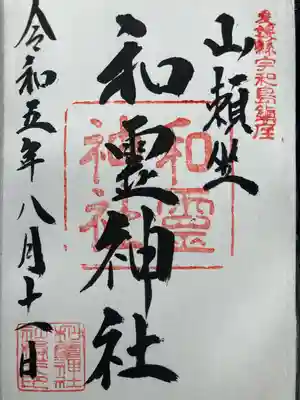 愛媛縣宇和島鎮座
山頼坐
和霊神社
和霊神社
令和五年八月十一日